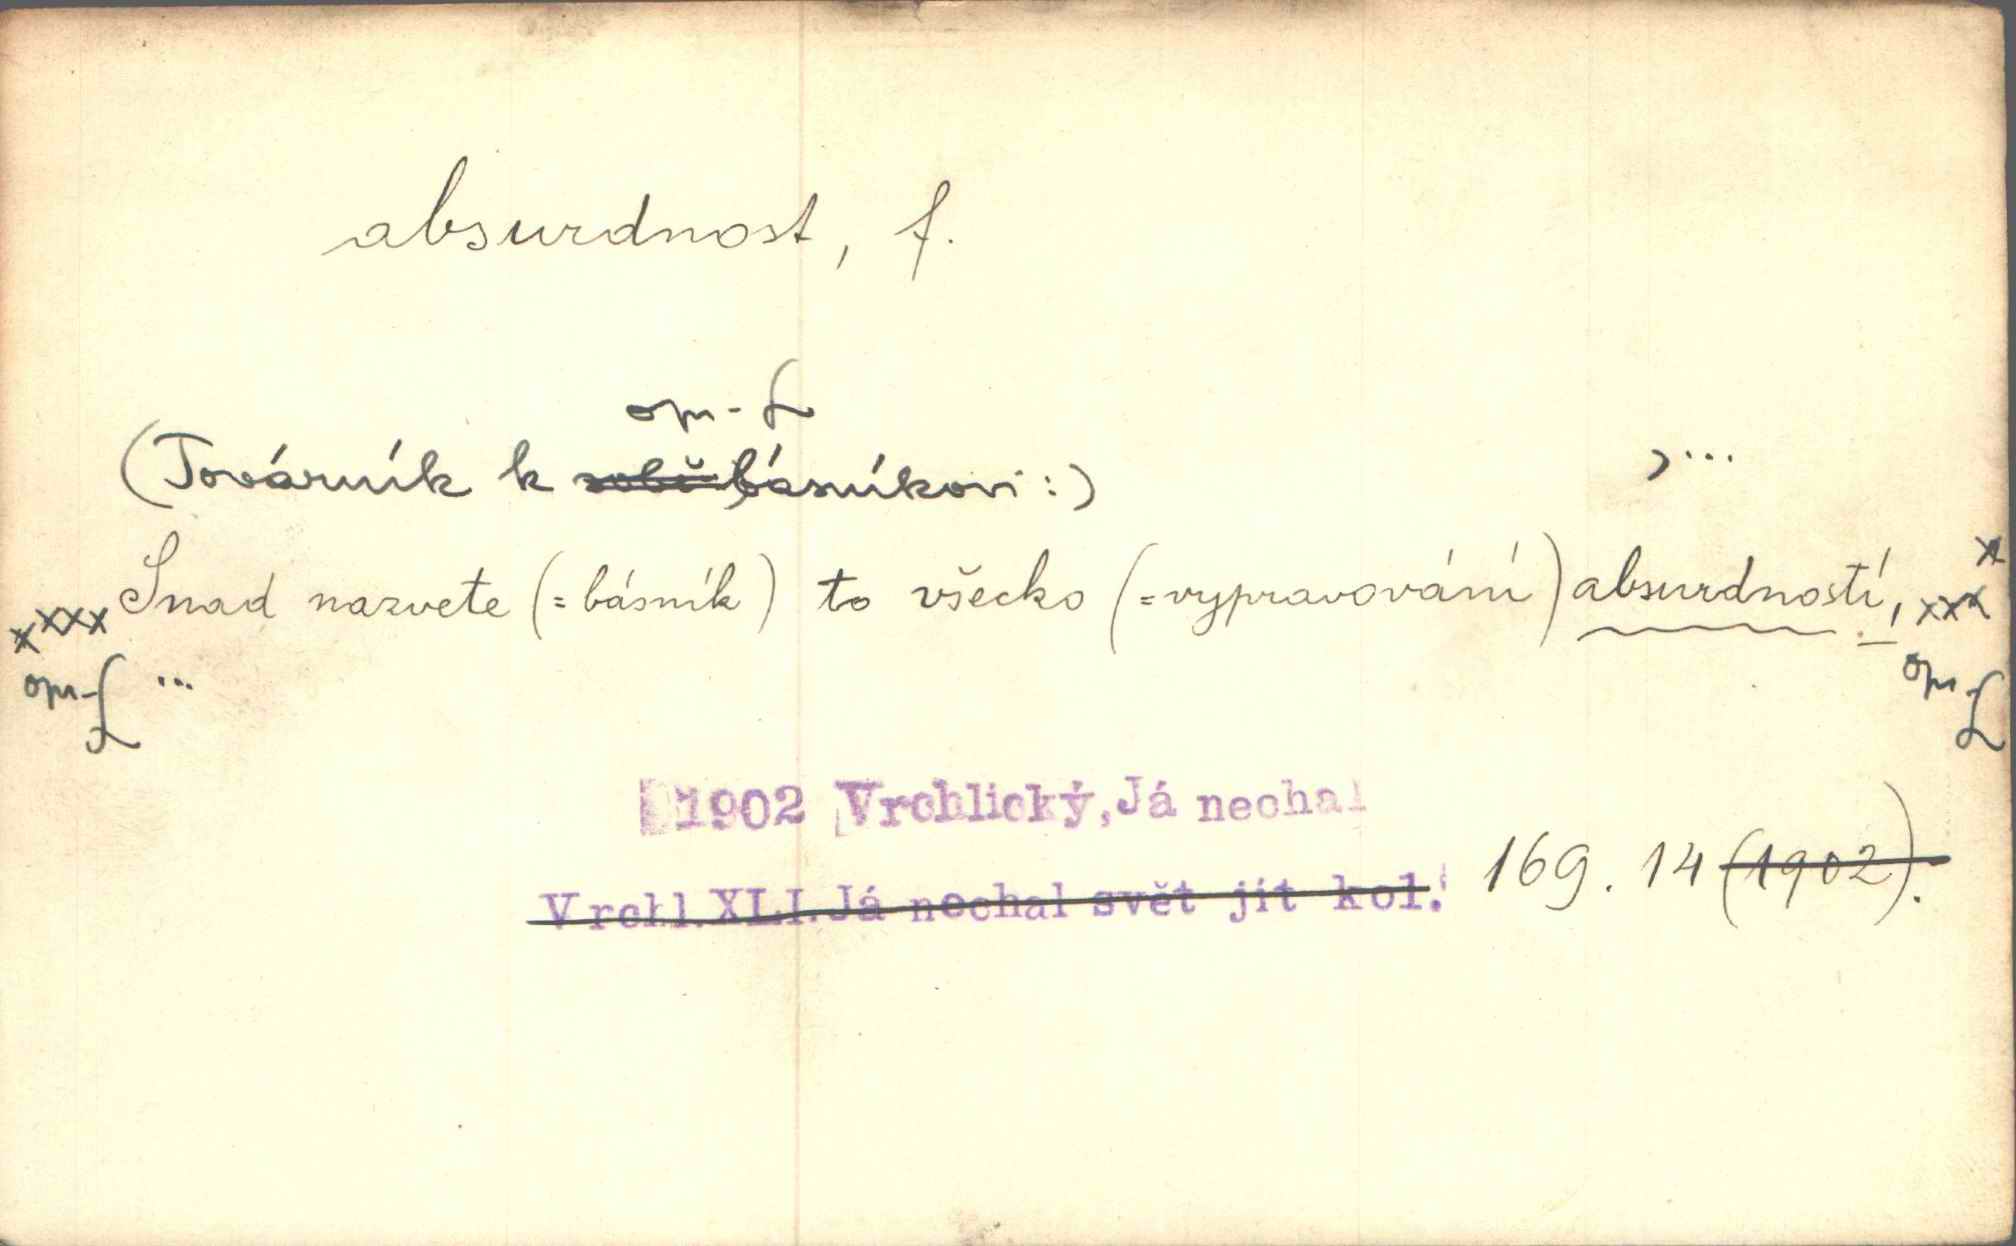 absurdnost, f.
opr-Ł
(Továrník k sobě básníkovi :) , ...
Snad nazvete (= básník) to všecko (= vypravování) absurdností, xxx x
xxxx
opr-Ł ... opr Ł
1902 Vrchlický, Já nechal
Vrchl. XLI. Já nechal svět jít kol. 169. 14 (1902).